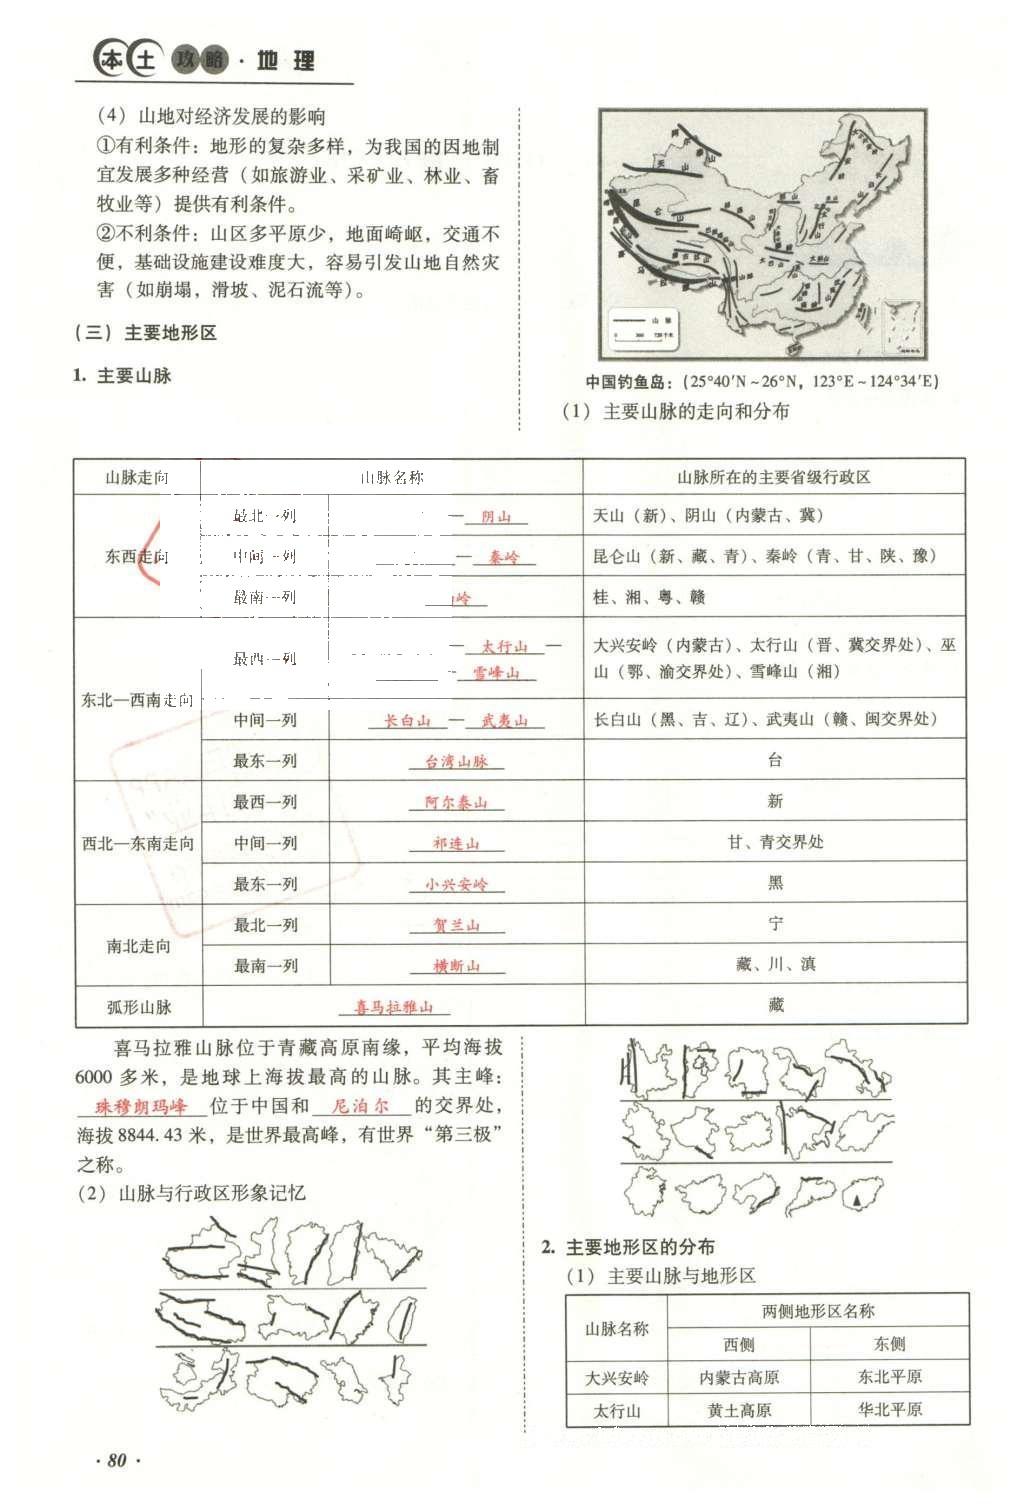 本土攻略·地理
(4) 山地对经济发展的影响
①有利条件：地形的复杂多样，为我国的因地制
宜发展多种经营（如旅游业、采矿业、林业、畜
牧业等）提供有利条件。
②不利条件：山区多平原少，地面崎岖，交通不
便，基础设施建设难度大，容易引发山地自然灾
害（如崩塌，滑坡、泥石流等）。
(三) 主要地形区
1. 主要山脉
山脉
中国钓鱼岛：(25°40′N～26°N，123°E～124°34′E)
(1) 主要山脉的走向和分布
山脉走向 山脉名称 山脉所在的主要省级行政区
东西走向
最北一列 —阴山 天山（新）、阴山（内蒙古、冀）
中间一列 —秦岭 昆仑山（新、藏、青）、秦岭（青、甘、陕、豫）
最南一列 岭 桂、湘、粤、赣
东北—西南走向
最西一列 —太行山— 大兴安岭（内蒙古）、太行山（晋、冀交界处）、巫
雪峰山 山（鄂、渝交界处）、雪峰山（湘）
中间一列 长白山—武夷山 长白山（黑、吉、辽）、武夷山（赣、闽交界处）
最东一列 台湾山脉 台
西北—东南走向
最西一列 阿尔泰山 新
中间一列 祁连山 甘、青交界处
最东一列 小兴安岭 黑
南北走向
最北一列 贺兰山 宁
最南一列 横断山 藏、川、滇
弧形山脉 喜马拉雅山 藏
喜马拉雅山脉位于青藏高原南缘，平均海拔
6000 多米，是地球上海拔最高的山脉。其主峰：
珠穆朗玛峰 位于中国和 尼泊尔 的交界处，
海拔 8844.43 米，是世界最高峰，有世界“第三极”
之称。
(2) 山脉与行政区形象记忆
2. 主要地形区的分布
(1) 主要山脉与地形区
山脉名称 两侧地形区名称
西侧 东侧
大兴安岭 内蒙古高原 东北平原
太行山 黄土高原 华北平原
·80·